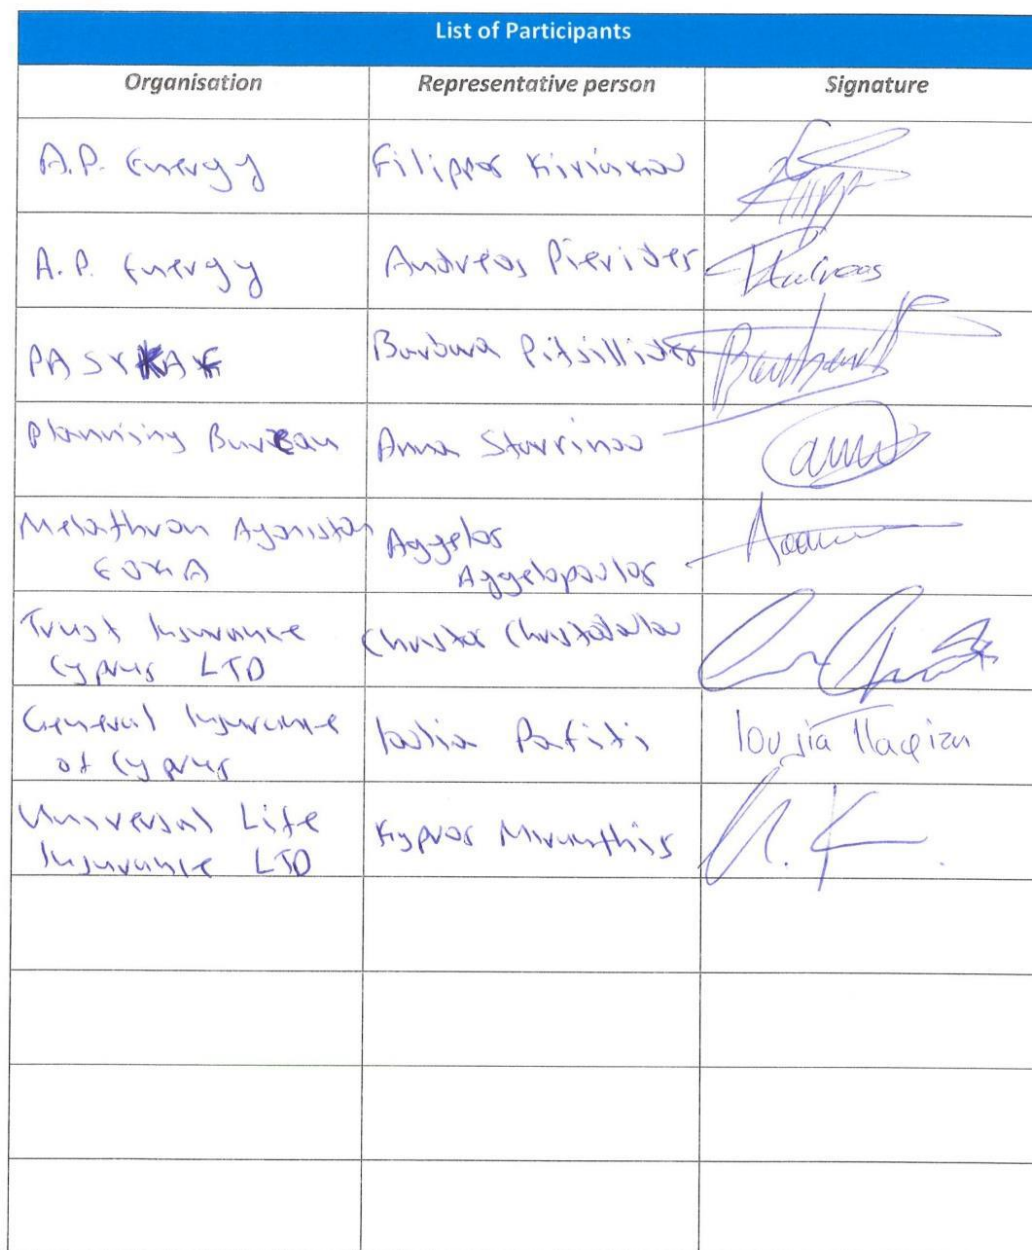 List of Participants
Organisation Representative person Signature
A.P. Energy Filippos Kiriakou
A.P. Energy Andreas Pierides Andreas
PASYKAF Barbara Pitsillides Barbara
Planning Bureau Anna Stavrinou
Melathron Agoniston
EOKA
Aggelos
Aggelopoulos
Trust Insurance
Cyprus LTD
Christos
General Insurance
of Cyprus
Ioulia Pafiti Ιουλία Παφίτη
Universal Life
Insurance LTD
Kypros Miranthis